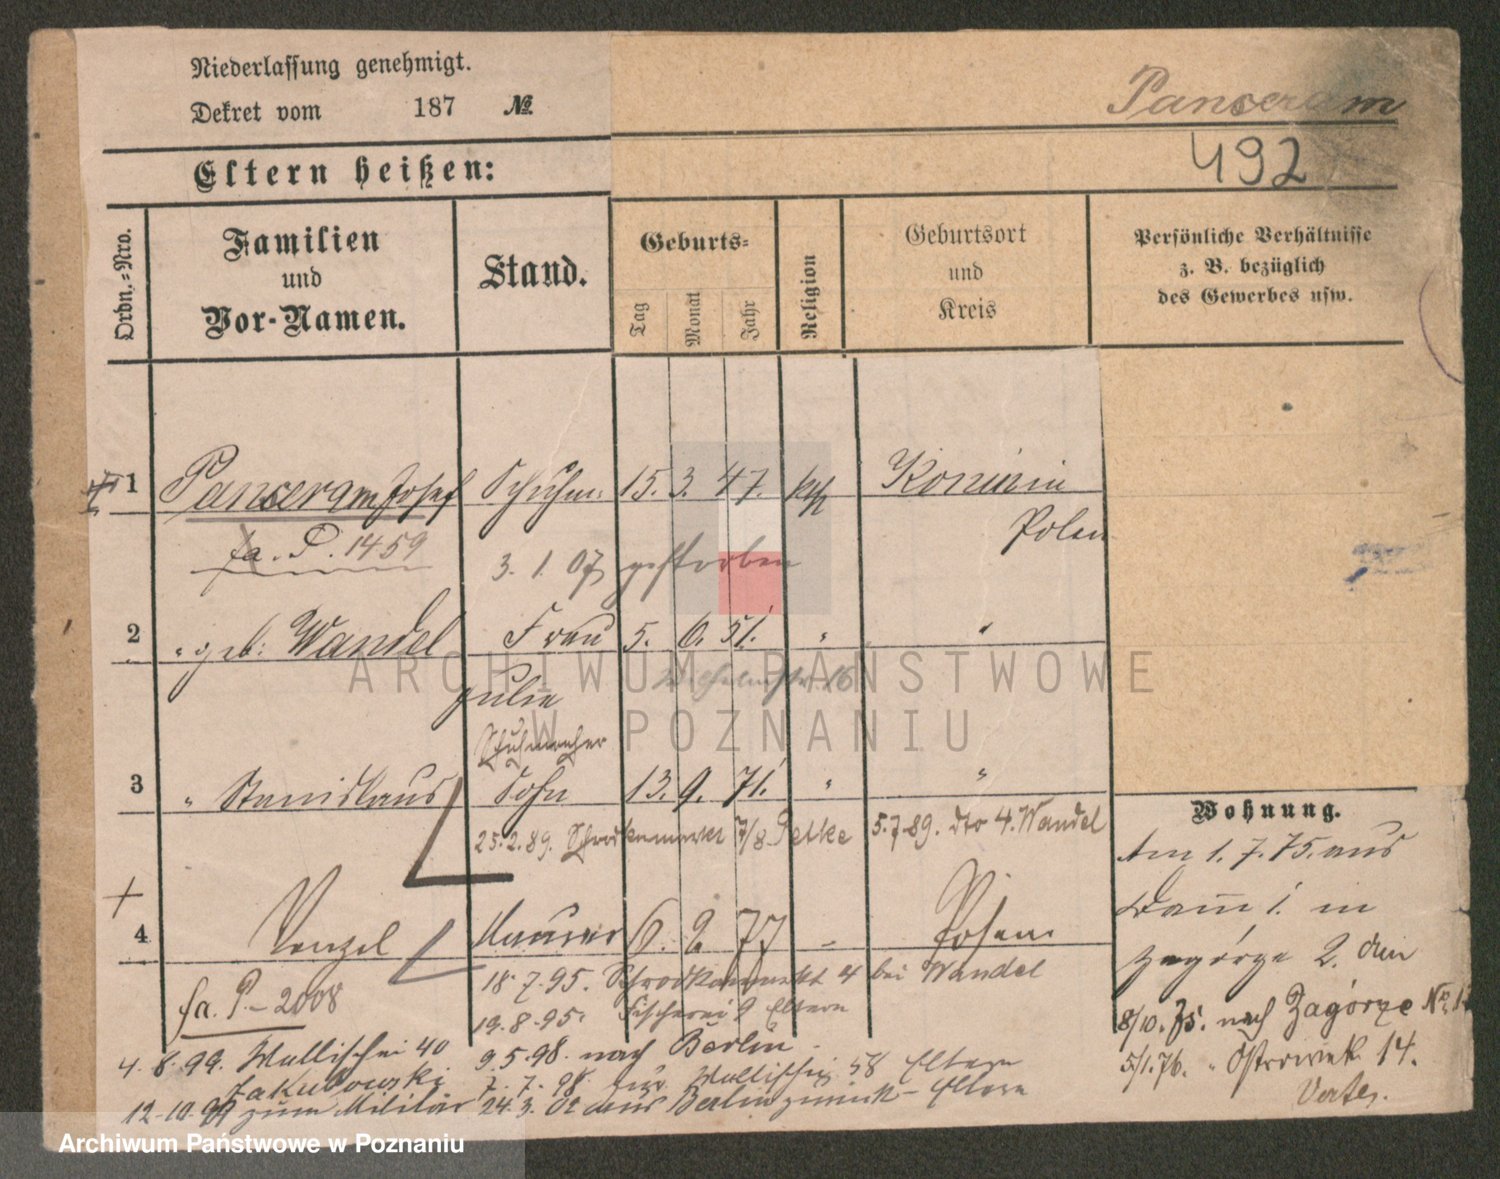 Niederlassung genehmigt.
Dekret vom 187 №
Panceram
492
Eltern heißen:
Ordn.-Nro.
Familien
und
Vor-Namen.
Stand.
Geburts-
Tag
Monat
Jahr
Religion
Geburtsort
und
Kreis
Persönliche Verhältnisse
z. B. bezüglich
des Gewerbes usw.
1 Panceram Josef Schuhm. 15. 3. 47. kth Koninin
Polen
fa. P. 1459
3. 1. 07 gestorben
2 " geb. Wandel Frau 5. 6. 51. " "
Julie
Schuhmacher
3 " Stanislaus Sohn 13. 9. 71. " "
25.2.89. Schrodkamarkt 7/8 Petke 5.7.89. dto 4. Wandel
4 Venzel Maurer 6. 9. 77 Posen
fa. P. – 2008
18.7.95. Schrodkamarkt 4 bei Wandel
19.8.95. Fischerei 9 Eltern
4.8.99. Wallischei 40 9.5.98. nach Berlin
Jakubowski 7.7.98. zur Wallischei 58 Eltern
12.10.99 zum Militär 24.3. 02 aus Berlin zurück – Eltern
Wohnung.
Am 1. 7. 75. aus
in
Zagórze 2. den
8/10. 75. nach Zagórze No.
5/1. 76. " Ostrowek 14.
ARCHIWUM PAŃSTWOWE
W POZNANIU
Archiwum Państwowe w Poznaniu